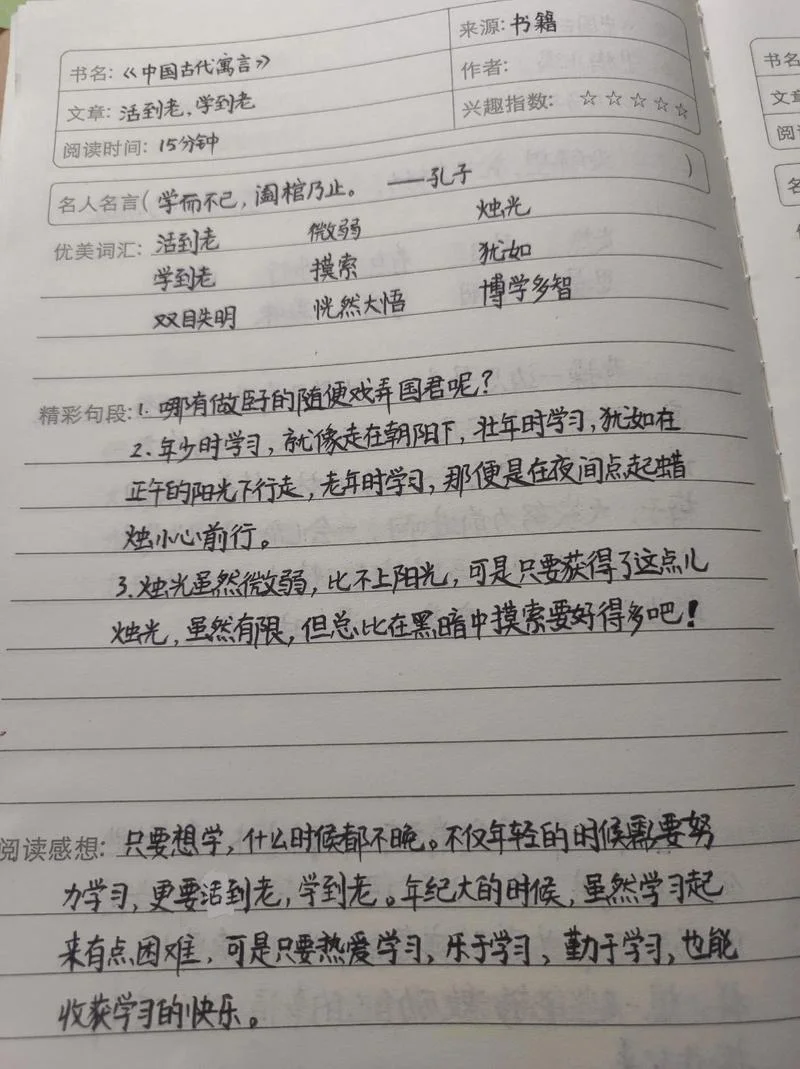 书名：《中国古代寓言》 来源：书籍
文章：活到老，学到老 作者：
阅读时间：15分钟 兴趣指数：☆☆☆☆☆
名人名言（学而不已，阖棺乃止。——孔子）
优美词汇：活到老 微弱 烛光
学到老 摸索 犹如
双目失明 恍然大悟 博学多智
精彩句段：1. 哪有做臣子的随便戏弄国君呢？
2. 年少时学习，就像走在朝阳下，壮年时学习，犹如在
正午的阳光下行走，老年时学习，那便是在夜间点起蜡
烛小心前行。
3. 烛光虽然微弱，比不上阳光，可是只要获得了这点儿
烛光，虽然有限，但总比在黑暗中摸索要好得多吧！
阅读感想：只要想学，什么时候都不晚。不仅年轻的时候需要努
力学习，更要活到老，学到老。年纪大的时候，虽然学习起
来有点困难，可是只要热爱学习，乐于学习，勤于学习，也能
收获学习的快乐。
书名
文章
阅读
名人